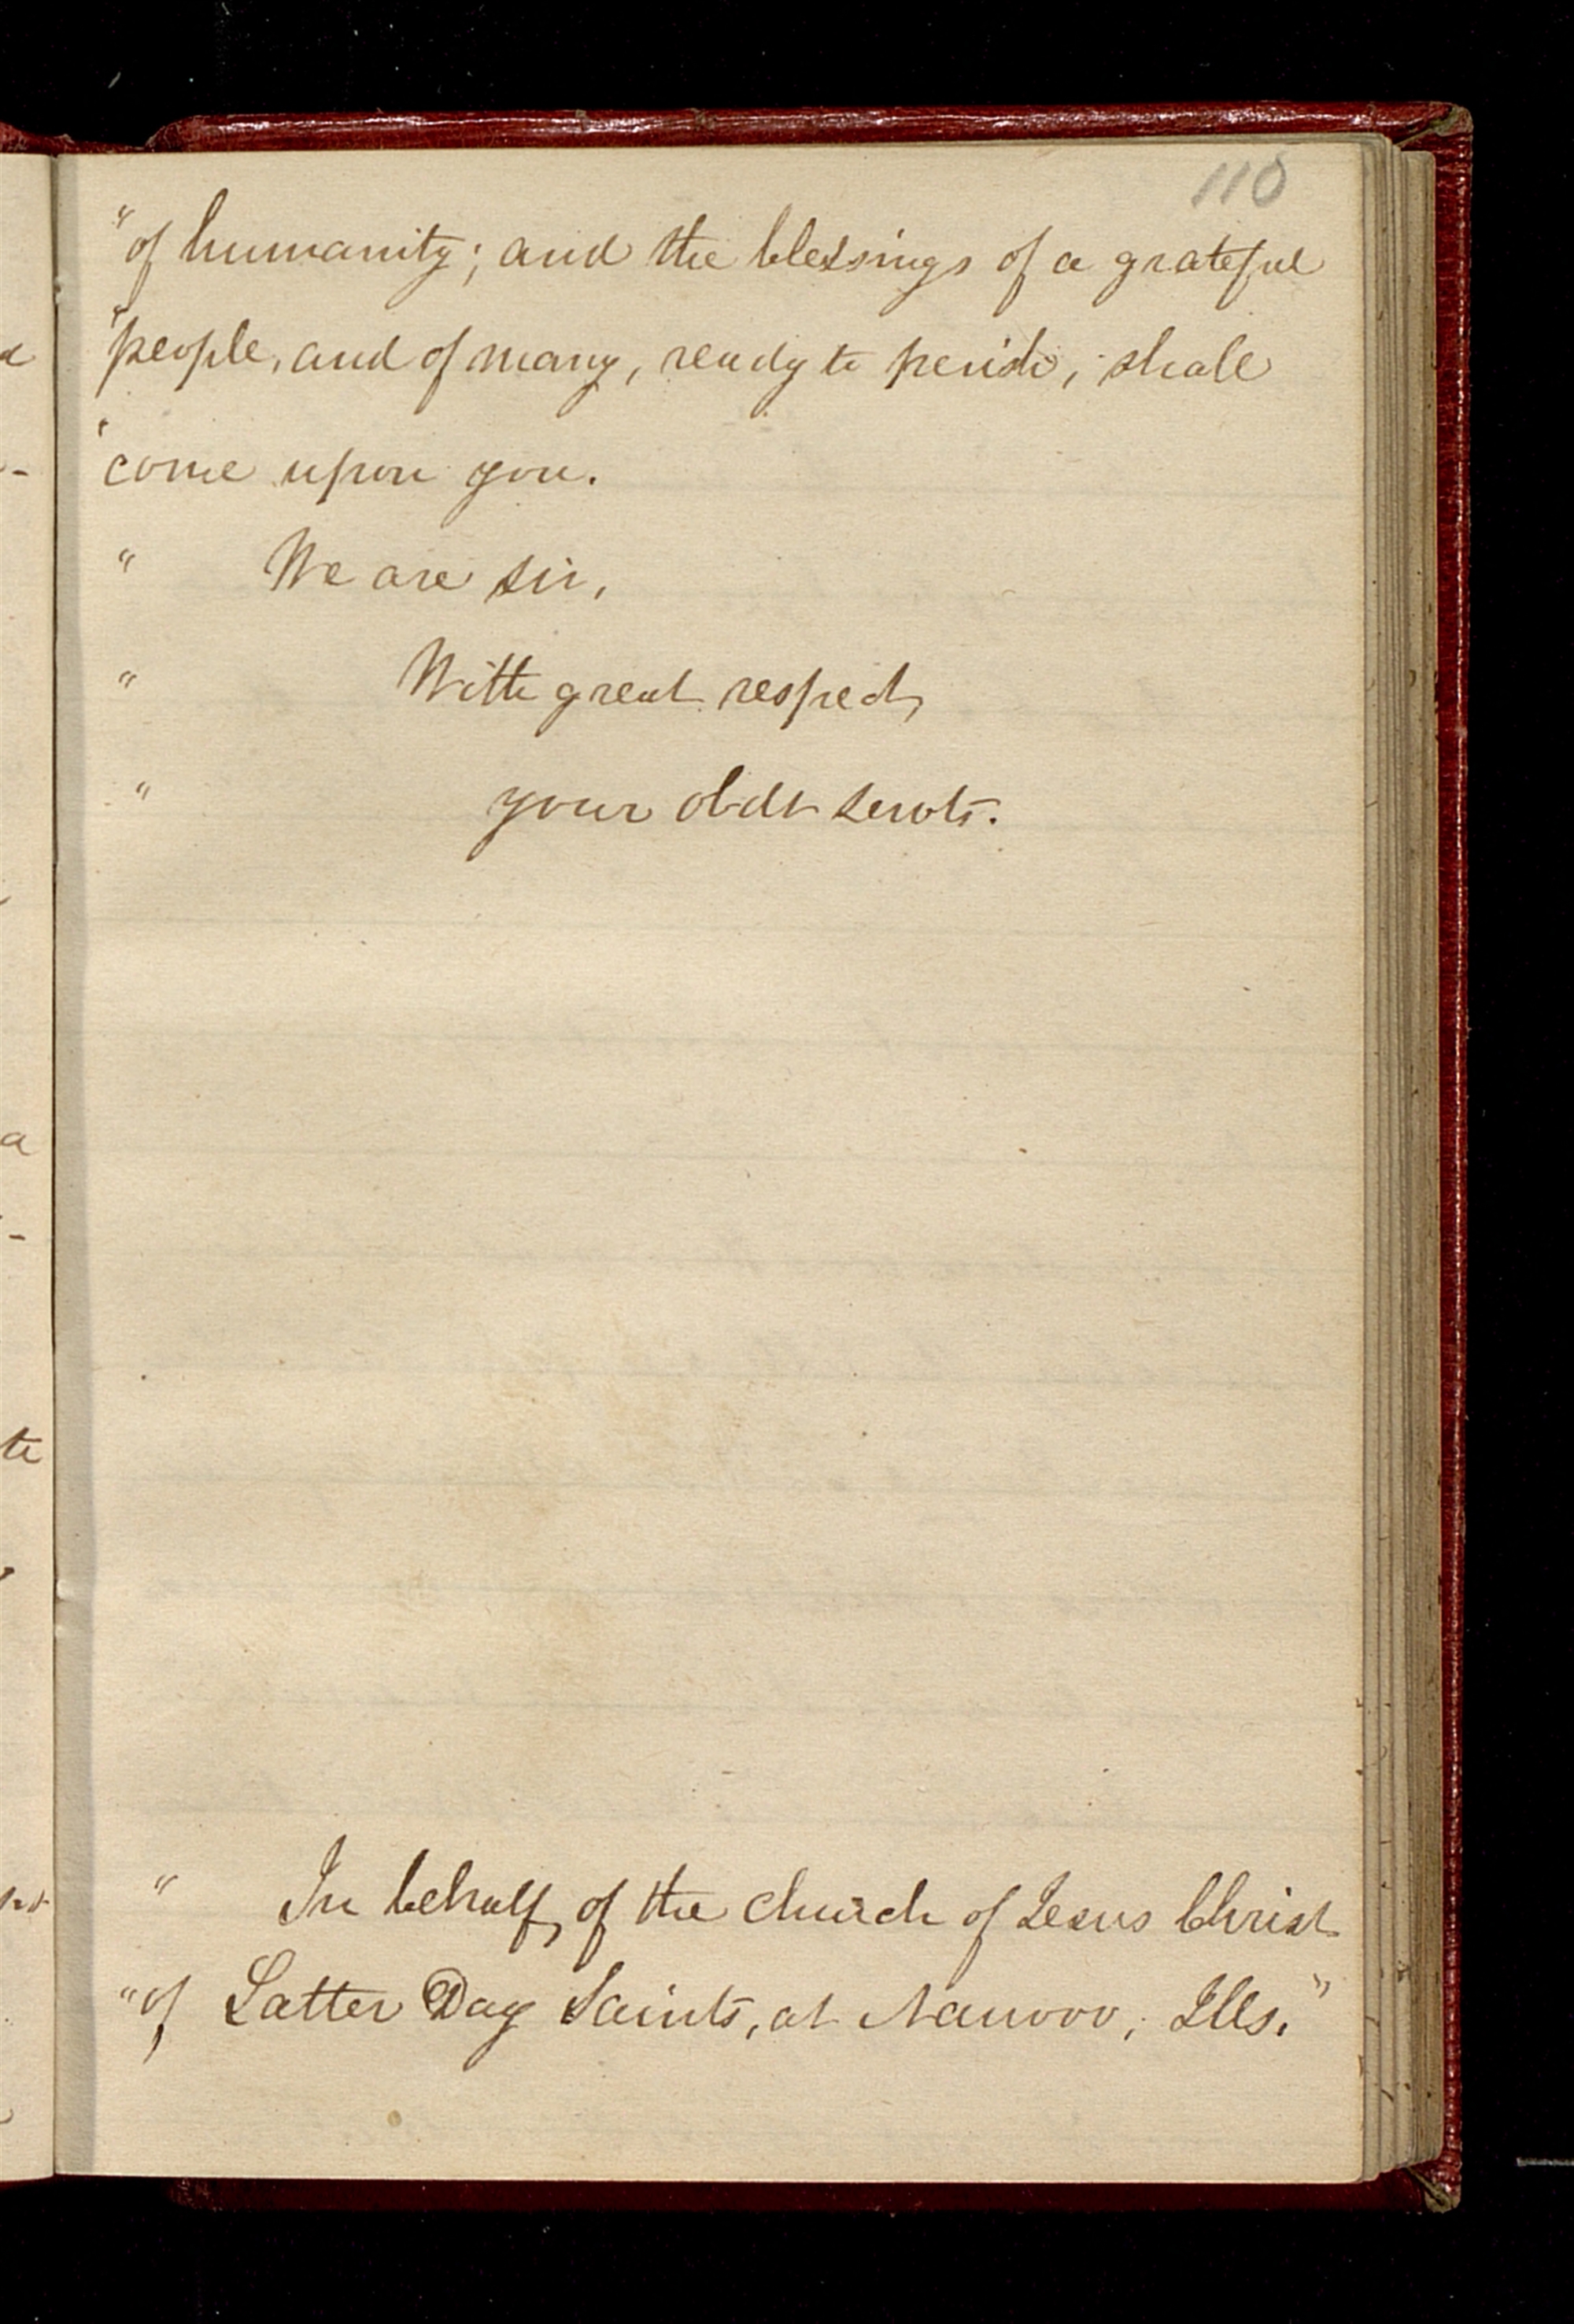 110
"of humanity; and the blessings of a grateful
"people, and of many, ready to perish, shall
"come upon you.
" We are sir,
" With great respect,
" your obdt servts.
" In behalf, of the church of Jesus Christ
"of Latter Day Saints, at Nauvoo, Ills."